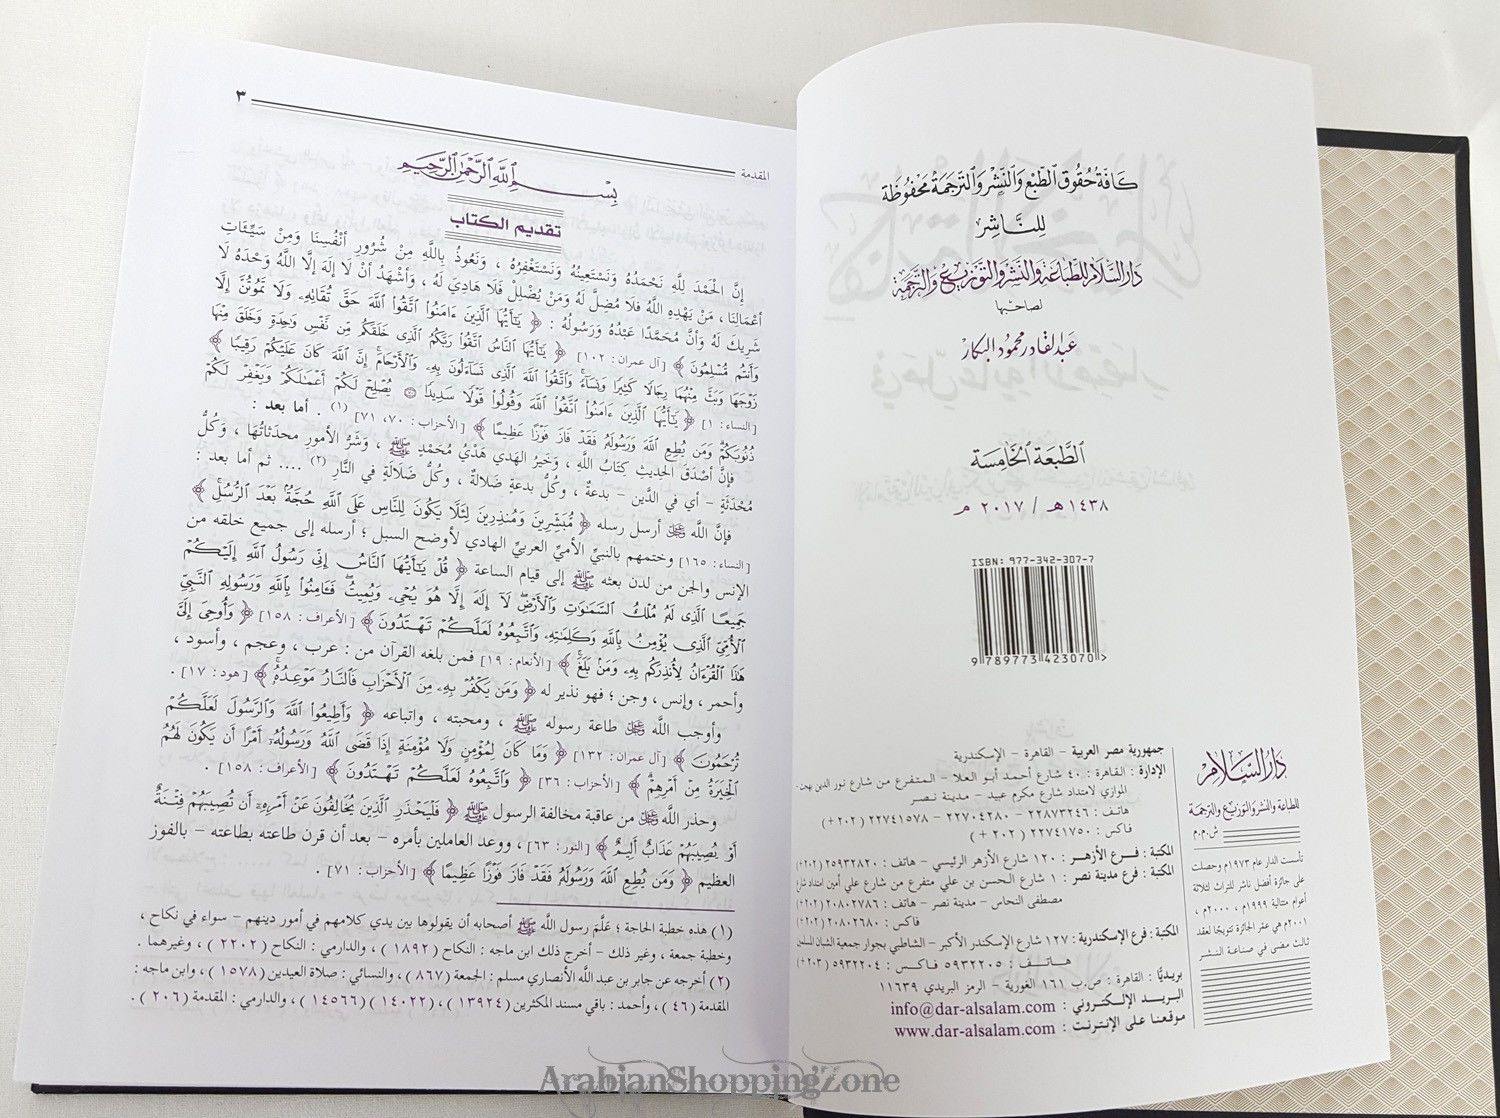 كافة حقوق الطبع والنشر والترجمة محفوظة
للناشر
دار السلام للطباعة والنشر والتوزيع والترجمة
لصاحبها
عبد القادر محمود البكار
الطبعة الخامسة
١٤٣٨ هـ / ٢٠١٧ م
ISBN: 977-342-307-7
9 789773 423070 >
جمهورية مصر العربية - القاهرة - الإسكندرية
الإدارة : القاهرة : ٤٠ شارع أحمد أبو العلا - المتفرع من شارع نور الدين بهجت -
الموازي لامتداد شارع مكرم عبيد - مدينة نصر
هاتف : ٢٢٨٧٣٢٤٦ - ٢٢٧٠٤٢٨٠ - ٢٢٧٤١٥٧٨ ( ٢٠٢ + )
فاكس : ٢٢٧٤١٧٥٠ ( ٢٠٢ + )
المكتبة : فرع الأزهر : ١٢٠ شارع الأزهر الرئيسي - هاتف : ٢٥٩٣٢٨٢٠ (٢٠٢+)
المكتبة : فرع مدينة نصر : ١ شارع الحسن بن علي متفرع من شارع علي أمين امتداد شارع
مصطفى النحاس - مدينة نصر - هاتف : ٢٠٨٠٢٧٨٦ (٢٠٢+)
فاكس : ٢٠٨٠٢٦٨٠ (٢٠٢+)
المكتبة : فرع الإسكندرية : ١٢٧ شارع الإسكندر الأكبر - الشاطبي بجوار جمعية الشبان المسلمين
هاتف : ٥٩٣٢٢٠٥ فاكس : ٥٩٣٢٢٠٤ (٢٠٣+)
بريديًّا : القاهرة : ص.ب ١٦١ الغورية - الرمز البريدي ١١٦٣٩
البريد الإلكتروني : info@dar-alsalam.com
موقعنا على الإنترنت : www.dar-alsalam.com
دار السلام
للطباعة والنشر والتوزيع والترجمة
ش.م.م
تأسست الدار عام ١٩٧٣م وحصلت
على جائزة أفضل ناشر للتراث لثلاثة
أعوام متتالية ١٩٩٩م ، ٢٠٠٠م ،
٢٠٠١م هي عقر الجائزة تتويجًا لعقد
ثالث مضى في صناعة النشر
المقدمة ٣
بسم الله الرحمن الرحيم
تقديم الكتاب
إنَّ الحَمْدَ لِلَّهِ نَحْمَدُهُ وَنَسْتَعِينُهُ وَنَسْتَغْفِرُهُ ، وَنَعُوذُ بِاللَّهِ مِنْ شُرُورِ أَنْفُسِنَا وَمِنْ سَيِّئَاتِ
أعْمَالِنَا ، مَنْ يَهْدِهِ اللَّهُ فَلا مُضِلَّ لَهُ وَمَنْ يُضْلِلْ فَلَا هَادِيَ لَهُ ، وَأشْهَدُ أنْ لَا إلهَ إلَّا اللَّهُ وَحْدَهُ لَا
شَرِيكَ لَهُ وَأنَّ مُحَمَّدًا عَبْدُهُ وَرَسُولُهُ : ﴿ يَٰٓأَيُّهَا ٱلَّذِينَ ءَامَنُوا۟ ٱتَّقُوا۟ ٱللَّهَ حَقَّ تُقَاتِهِۦ وَلَا تَمُوتُنَّ إِلَّا
وَأَنتُم مُّسْلِمُونَ ﴾ [آل عمران : ١٠٢] ﴿ يَٰٓأَيُّهَا ٱلنَّاسُ ٱتَّقُوا۟ رَبَّكُمُ ٱلَّذِى خَلَقَكُم مِّن نَّفْسٍ وَٰحِدَةٍ وَخَلَقَ مِنْهَا
زَوْجَهَا وَبَثَّ مِنْهُمَا رِجَالًا كَثِيرًا وَنِسَآءً وَٱتَّقُوا۟ ٱللَّهَ ٱلَّذِى تَسَآءَلُونَ بِهِۦ وَٱلْأَرْحَامَ إِنَّ ٱللَّهَ كَانَ عَلَيْكُمْ رَقِيبًا ﴾
[النساء : ١] ﴿ يَٰٓأَيُّهَا ٱلَّذِينَ ءَامَنُوا۟ ٱتَّقُوا۟ ٱللَّهَ وَقُولُوا۟ قَوْلًا سَدِيدًا ۞ يُصْلِحْ لَكُمْ أَعْمَٰلَكُمْ وَيَغْفِرْ لَكُمْ
ذُنُوبَكُمْ وَمَن يُطِعِ ٱللَّهَ وَرَسُولَهُۥ فَقَدْ فَازَ فَوْزًا عَظِيمًا ﴾ [الأحزاب : ٧٠، ٧١] (١) . أما بعد :
فإنَّ أصْدَقَ الحديثِ كتَابُ اللَّهِ ، وَخَيْرُ الهَدي هَدْيُ مُحَمَّدٍ ﷺ ، وَشَرُّ الأمورِ محدَثاتُهَا ، وَكُلُّ
مُحْدَثَةٍ - أي في الدَّين - بدعةٌ ، وكُلُّ بدعةٍ ضَلالة ، وكُلُّ ضَلَالَةٍ في النَّارِ (٢) .... ثم أما بعد :
فإنَّ الله ﷻ أرسل رسله ﴿ مُّبَشِّرِينَ وَمُنذِرِينَ لِئَلَّا يَكُونَ لِلنَّاسِ عَلَى ٱللَّهِ حُجَّةٌۢ بَعْدَ ٱلرُّسُلِ ﴾
[النساء : ١٦٥] وختمهم بالنبيِّ الأميِّ العربيِّ الهادي لأوضح السبل ؛ أرسله إلى جميع خلقه من
الإنس والجن من لدن بعثه ﷺ إلى قيام الساعة ﴿ قُلْ يَٰٓأَيُّهَا ٱلنَّاسُ إِنِّى رَسُولُ ٱللَّهِ إِلَيْكُمْ
جَمِيعًا ٱلَّذِى لَهُۥ مُلْكُ ٱلسَّمَٰوَٰتِ وَٱلْأَرْضِ لَآ إِلَٰهَ إِلَّا هُوَ يُحْىِۦ وَيُمِيتُ فَـَٔامِنُوا۟ بِٱللَّهِ وَرَسُولِهِ ٱلنَّبِىِّ
ٱلْأُمِّىِّ ٱلَّذِى يُؤْمِنُ بِٱللَّهِ وَكَلِمَٰتِهِۦ وَٱتَّبِعُوهُ لَعَلَّكُمْ تَهْتَدُونَ ﴾ [الأعراف : ١٥٨] ﴿ وَأُوحِىَ إِلَىَّ
هَٰذَا ٱلْقُرْءَانُ لِأُنذِرَكُم بِهِۦ وَمَنۢ بَلَغَ ﴾ [الأنعام : ١٩] فمن بلغه القرآن من : عرب ، وعجم ، وأسود ،
وأحمر ، وإنس ، وجن ؛ فهو نذير له ﴿ وَمَن يَكْفُرْ بِهِۦ مِنَ ٱلْأَحْزَابِ فَٱلنَّارُ مَوْعِدُهُۥ ﴾ [هود : ١٧] .
وأوجب اللَّه ﷻ طاعة رسوله ﷺ ، ومحبته ، واتباعه ﴿ وَأَطِيعُوا۟ ٱللَّهَ وَٱلرَّسُولَ لَعَلَّكُمْ
تُرْحَمُونَ ﴾ [آل عمران : ١٣٢] ﴿ وَمَا كَانَ لِمُؤْمِنٍ وَلَا مُؤْمِنَةٍ إِذَا قَضَى ٱللَّهُ وَرَسُولُهُۥٓ أَمْرًا أَن يَكُونَ لَهُمُ
ٱلْخِيَرَةُ مِنْ أَمْرِهِمْ ﴾ [الأحزاب : ٣٦] ﴿ وَٱتَّبِعُوهُ لَعَلَّكُمْ تَهْتَدُونَ ﴾ [الأعراف : ١٥٨] .
وحذر اللَّه ﷻ من عاقبة مخالفة الرسول ﷺ ﴿ فَلْيَحْذَرِ ٱلَّذِينَ يُخَالِفُونَ عَنْ أَمْرِهِۦٓ أَن تُصِيبَهُمْ فِتْنَةٌ
أَوْ يُصِيبَهُمْ عَذَابٌ أَلِيمٌ ﴾ [النور : ٦٣] ، ووعد العاملين بأمره - بعد أن قرن طاعته بطاعته - بالفوز
العظيم ﴿ وَمَن يُطِعِ ٱللَّهَ وَرَسُولَهُۥ فَقَدْ فَازَ فَوْزًا عَظِيمًا ﴾ [الأحزاب : ٧١] .
(١) هذه خطبة الحاجة ؛ عَلَّمَ رسول اللَّه ﷺ أصحابه أن يقولوها بين يدي كلامهم في أمور دينهم - سواء في نكاح ،
وخطبة جمعة ، وغير ذلك - أخرج ذلك ابن ماجه : النكاح ( ١٨٩٢ ) ، والدارمي : النكاح ( ٢٢٠٢ ) ، وغيرهما .
(٢) أخرجه عن جابر بن عبد اللَّه الأنصاري مسلم : الجمعة ( ٨٦٧ ) ، والنسائي : صلاة العيدين ( ١٥٧٨ ) ، وابن ماجه :
المقدمة ( ٤٦ ) ، وأحمد : باقي مسند المكثرين ( ١٣٩٢٤ ) ، ( ١٤٠٢٢ ) ( ١٤٥٦٦ ) ، والدارمي : المقدمة ( ٢٠٦ ) .
ArabianShoppingZone